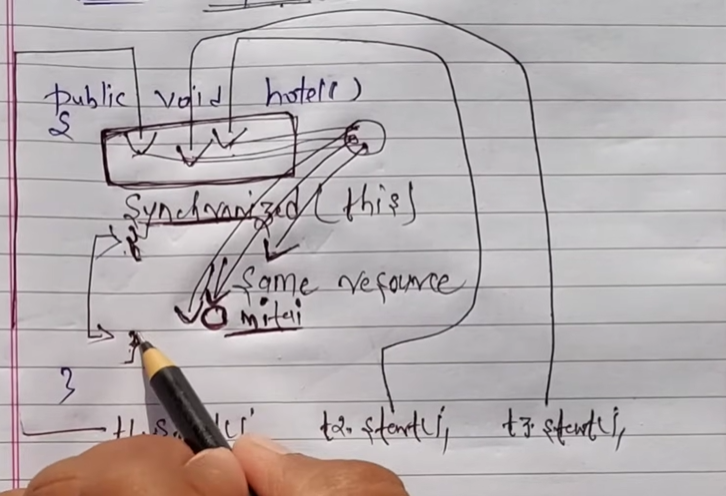 public void hotel()
{
Synchronized (this)
{
Same resource
mitai
}
}
t2. start();
t3. start();